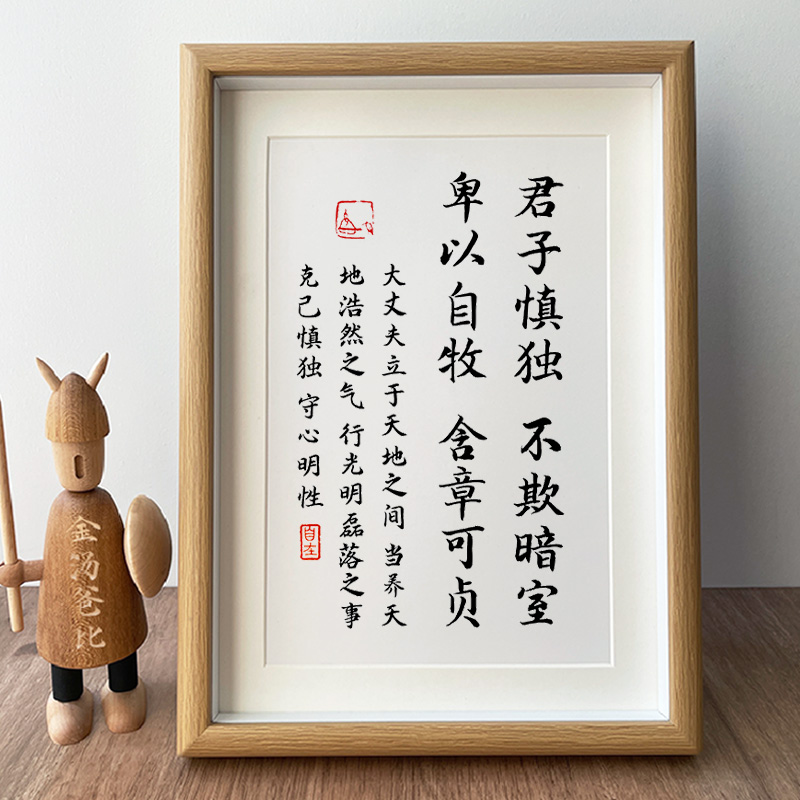 君子慎独 不欺暗室
卑以自牧 含章可贞
大丈夫立于天地之间 当养天
地浩然之气 行光明磊落之事
克己慎独 守心明性
自在
金汤爸比